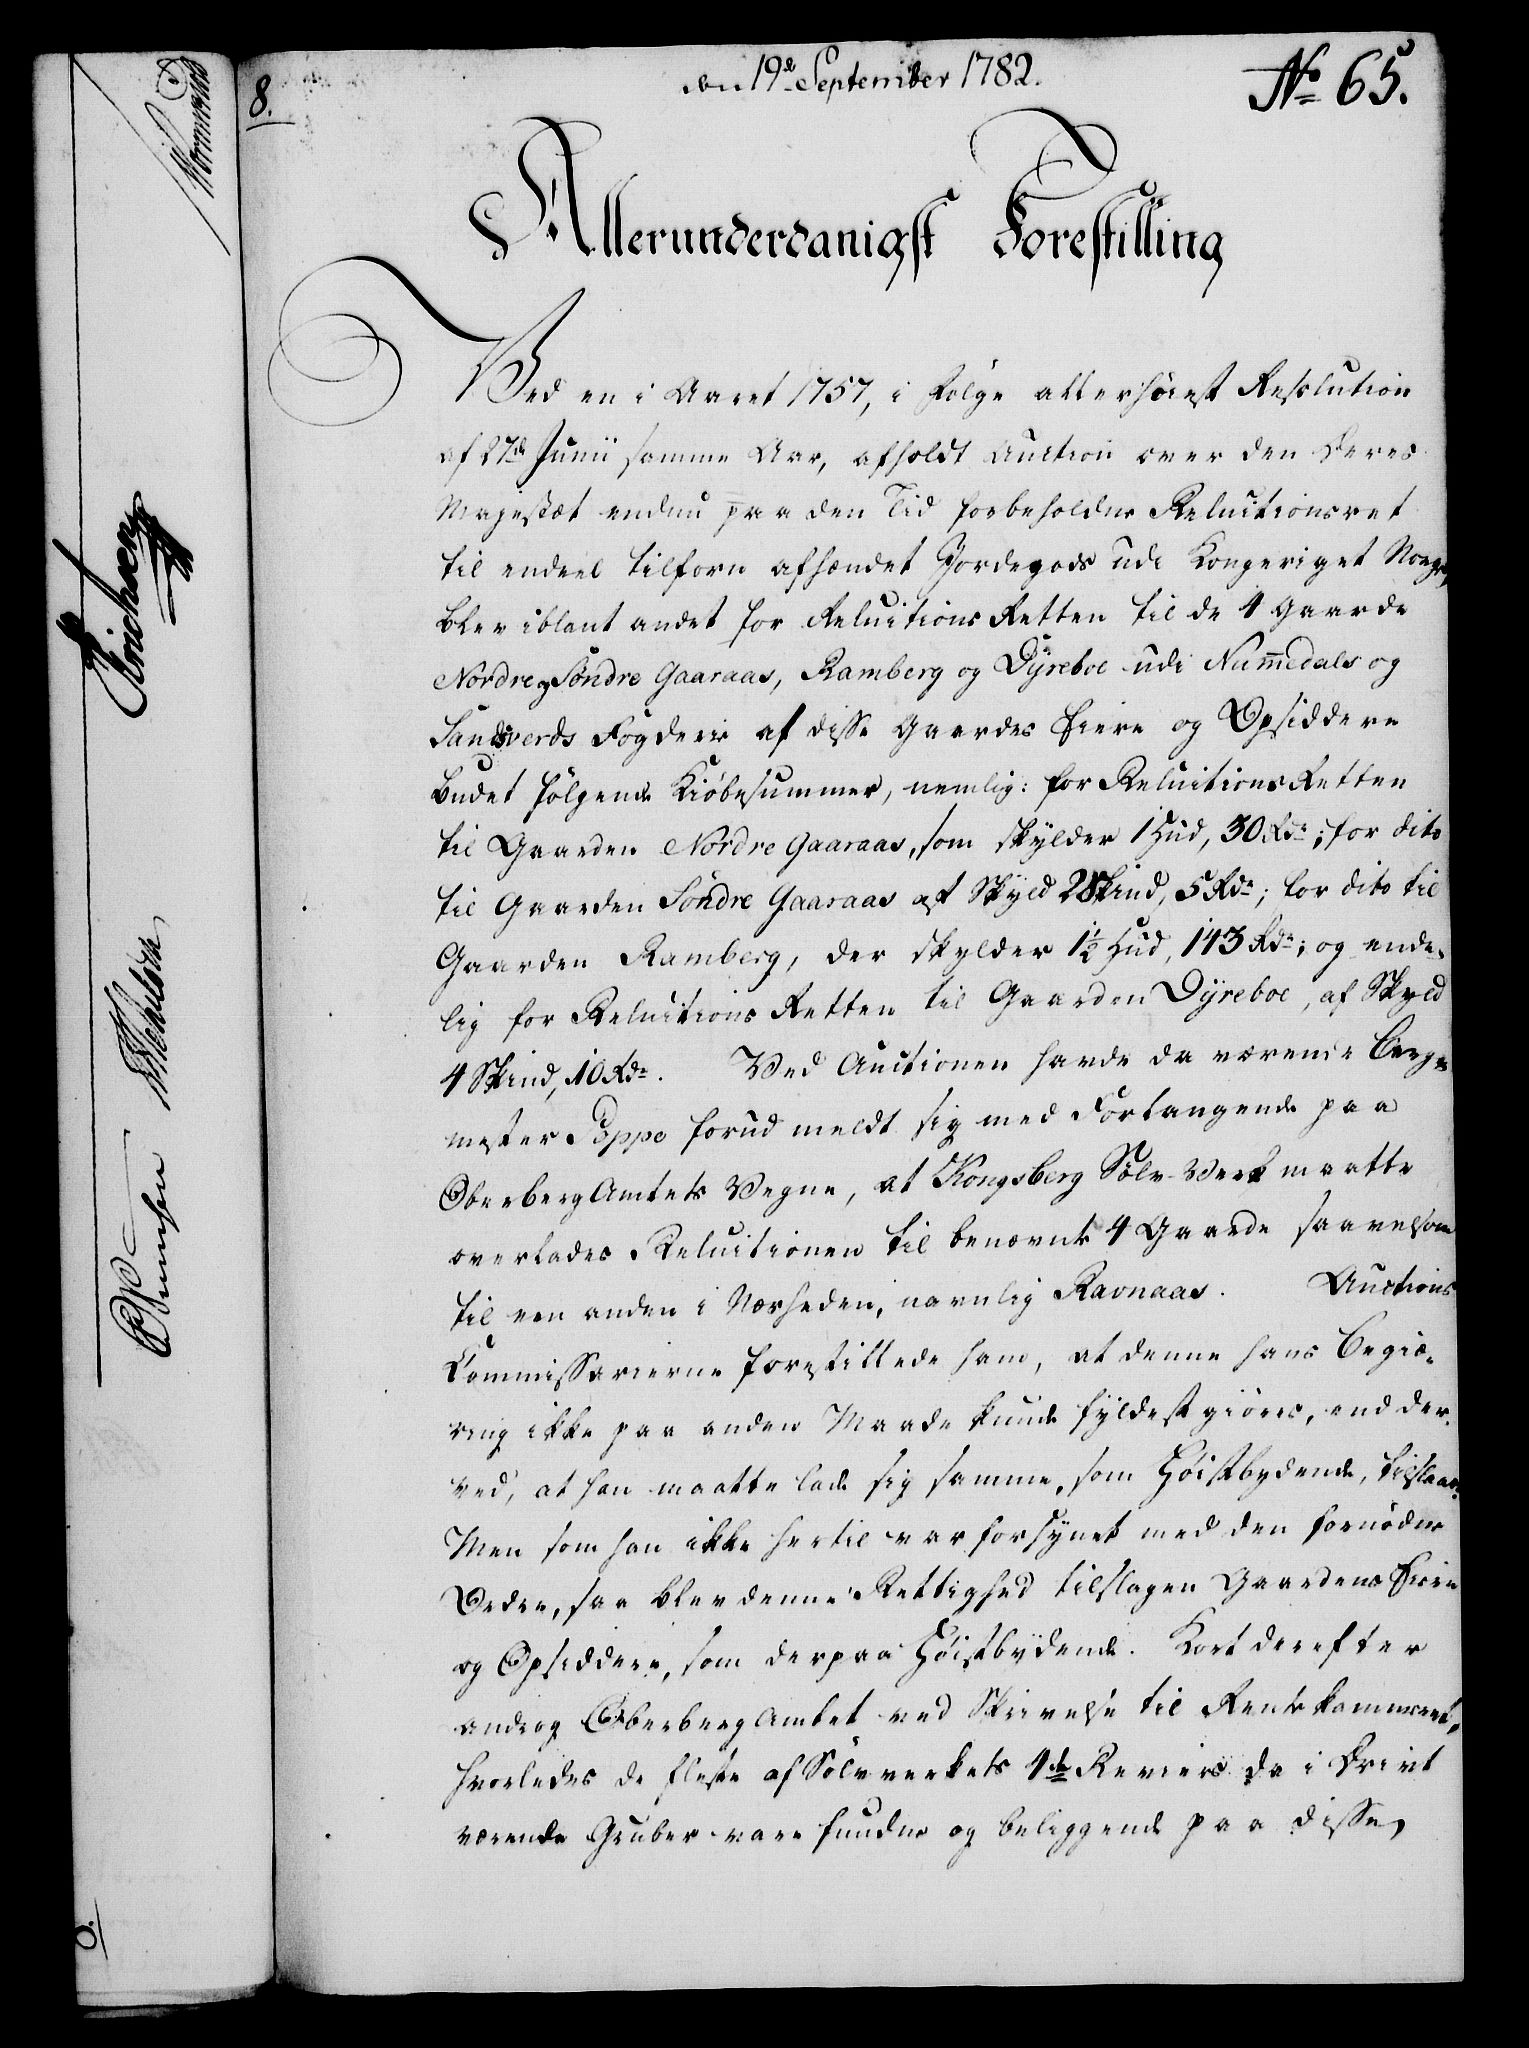 8.
den 19de September 1782.
No 65.
Allerunderdanigst Forestilling
Ved en i Aaret 1757, i Følge allerhøiest Resolution
af 27de Junii samme Aar, afholdt Auction over den Deres
Majestæt endnu paa den Tid forbeholdne Reluitionsret
til endeel tilforn afhændet Jordegods udi Kongeriget Norge,
blev iblant andet for Reluitions Retten til de 4 Gaarde
Nordre og Søndre Gaaraas, Ramberg og Dÿreboe udi Nummedals og
Sandsverds Fogderie af disse Gaardes Eiere og Opsiddere
budet følgende Kiøbesummer, nemlig: for Reluitions Retten
til Gaarden Nordre Gaaraas, som skylder 1 Hud, 30 Rdr; for dito
til Gaarden Søndre Gaaraas af Skyld 2 Skind, 5 Rdr; for dito til
Gaarden Ramberg, der skylder 1½ Hud, 143 Rdr; og ende-
lig for Reluitions Retten til Gaarden Dÿreboe, af Skyld
4 Skind, 10 Rdr. Ved Auctionen havde da værende Berg-
mester Poppe forud meldt sig med Forlangende paa
OberbergAmtets Vegne, at Kongsberg Sølv-Verk maatte
overlades Reluitionen til benævnte 4 Gaarde saavelsom
til een anden i Nærheden, navnlig Ravnaas. Auctions
Commissarierne forestillede ham, at denne hans Begiæ-
ring ikke paa anden Maade kunde fyldestgiøres, end der-
ved, at han maatte lade sig samme, som Høistbydende, tilslaae.
Men som han ikke hertil var forsynet med den fornødne
Ordre, saa blev denne Rettighed tilslagen Gaardens Eiere
og Opsiddere, som derpaa Høistbydende. Kort derefter
androg OberbergAmtet ved Skrivelse til Rentekammeret,
hvorledes de fleste af Sølvverkets 4de Reviers da i Drivt
værende Gruber vare fundne og beliggende paa disse
Erichsen